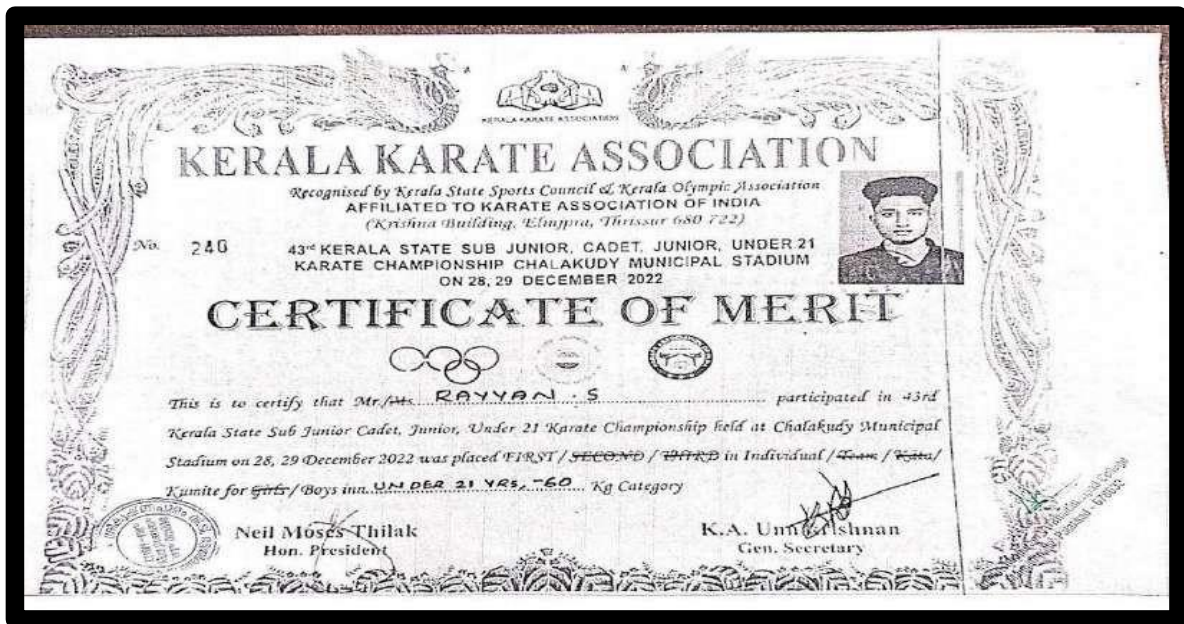 KERALA KARATE ASSOCIATION
KERALA KARATE ASSOCIATION
Recognised by Kerala State Sports Council & Kerala Olympic Association
AFFILIATED TO KARATE ASSOCIATION OF INDIA
(Krishna Building, Thrissur 680 722)
No. 240
43rd KERALA STATE SUB JUNIOR, CADET, JUNIOR, UNDER 21
KARATE CHAMPIONSHIP CHALAKUDY MUNICIPAL STADIUM
ON 28, 29 DECEMBER 2022
CERTIFICATE OF MERIT
This is to certify that Mr./Ms. RAYYAN . S participated in 43rd
Kerala State Sub Junior Cadet, Junior, Under 21 Karate Championship held at Chalakudy Municipal
Stadium on 28, 29 December 2022 was placed FIRST / SECOND / THIRD in Individual / Team / Kata/
Kumite for Girls / Boys inn UNDER 21 YRS, -60 Kg Category
Neil Moses Thilak
Hon. President
K.A. Unnikrishnan
Gen. Secretary